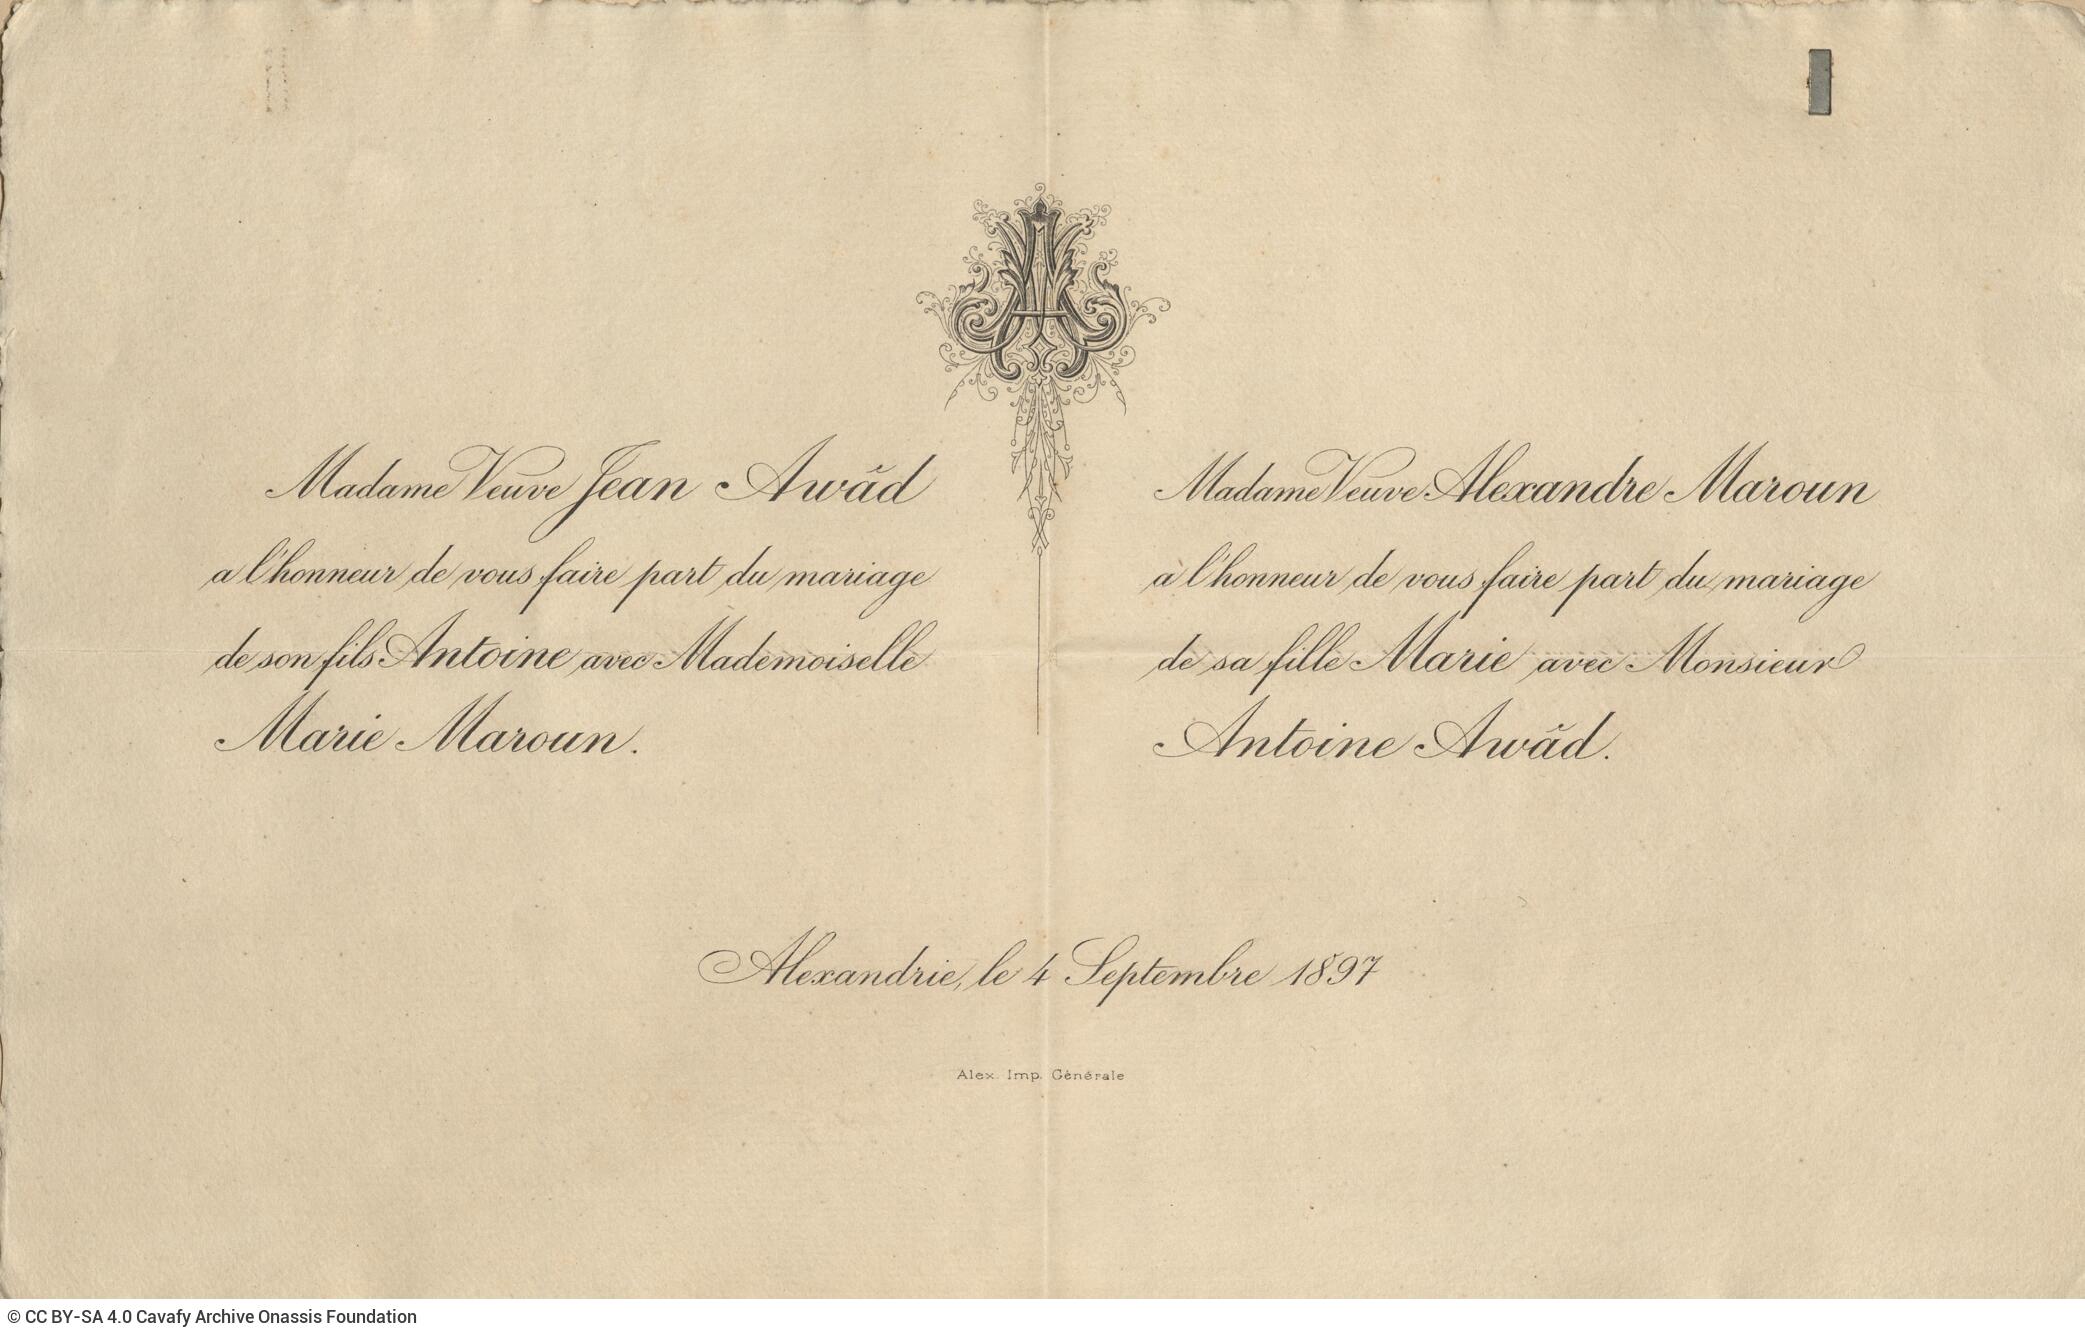 Madame Veuve Jean Awăd
a l'honneur de vous faire part du mariage
de son fils Antoine avec Mademoiselle
Marie Maroun.
Madame Veuve Alexandre Maroun
a l'honneur de vous faire part du mariage
de sa fille Marie avec Monsieur
Antoine Awăd.
Alexandrie, le 4 Septembre 1897
Alex. Imp. Générale
© CC BY-SA 4.0 Cavafy Archive Onassis Foundation